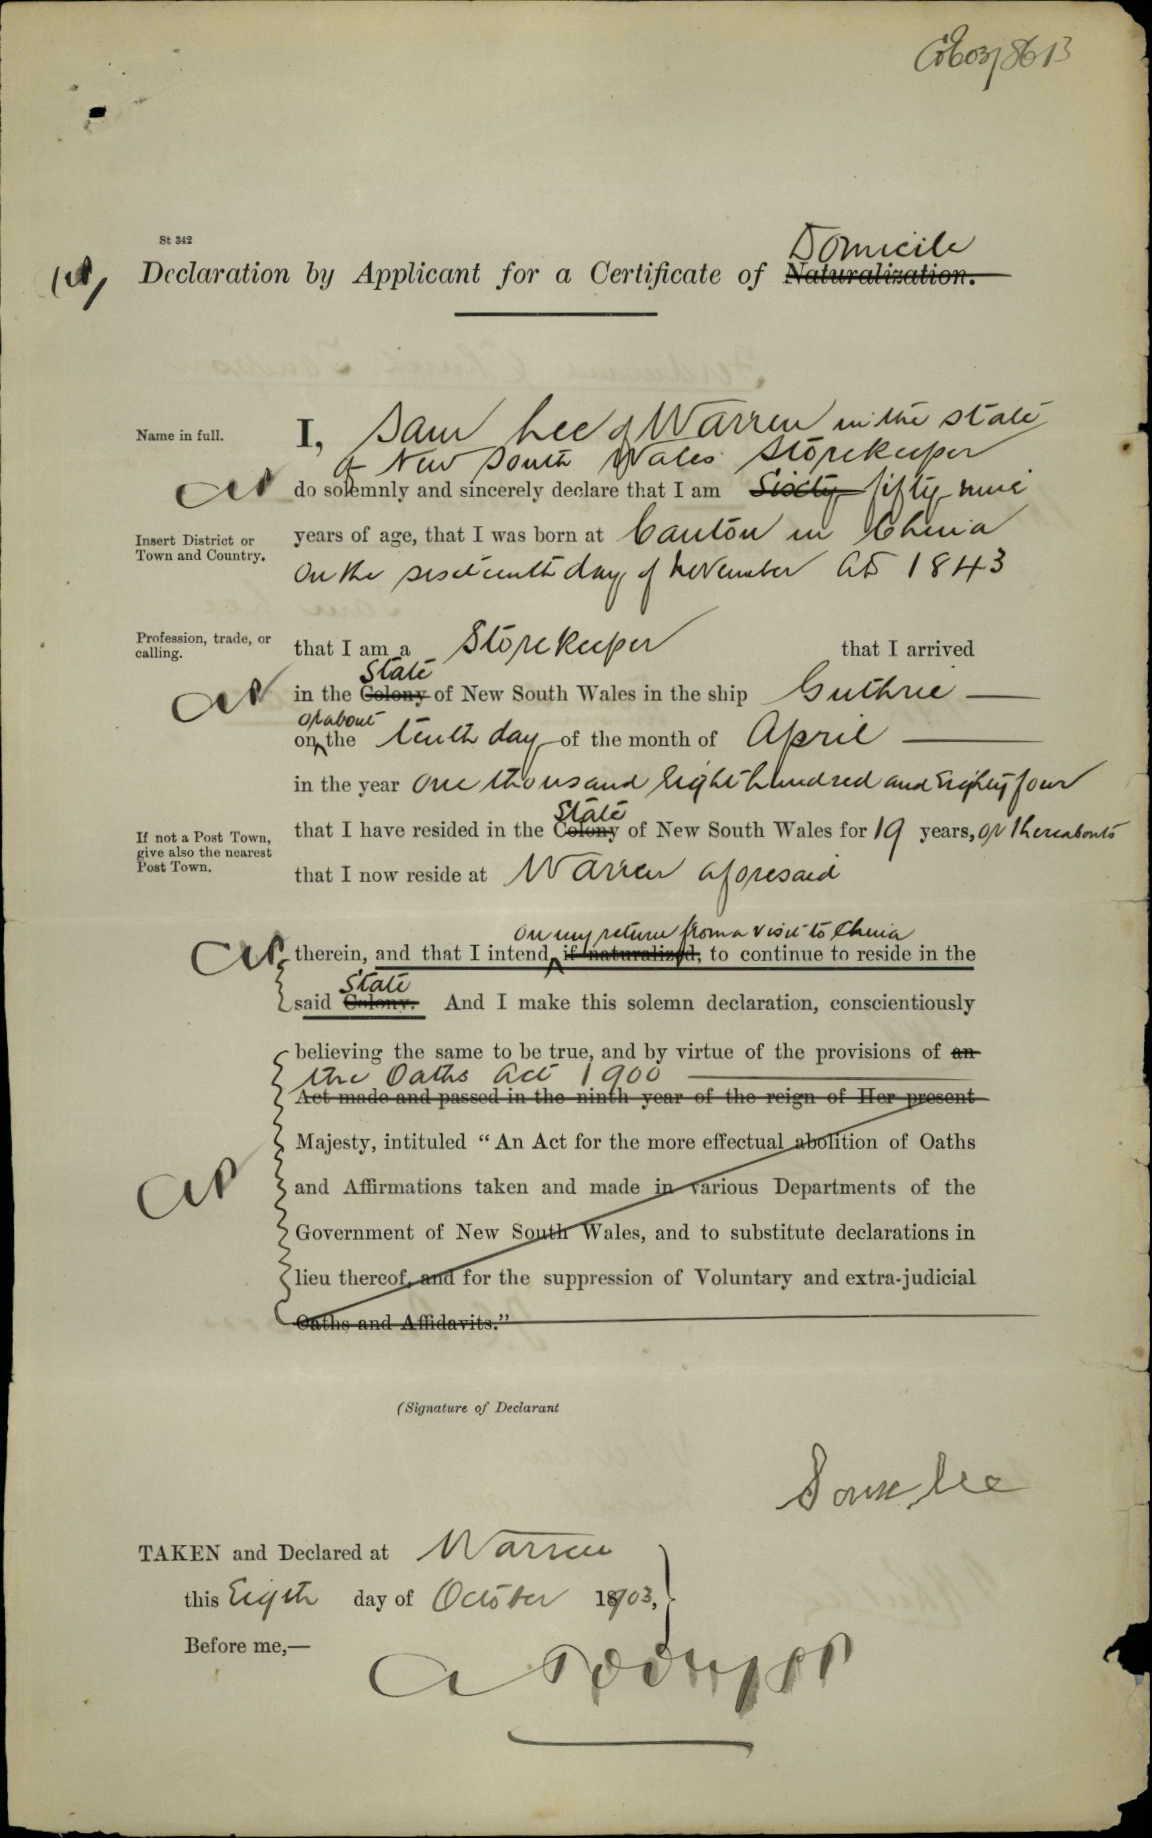 C03/8613
St 342
Domicile
Declaration by Applicant for a Certificate of Naturalization.
Name in full.
I, Sam Lee of Warren in the State
of New South Wales Storekeeper
do solemnly and sincerely declare that I am Sixty fifty nine
Insert District or
Town and Country.
years of age, that I was born at Canton in China
on the sixteenth day of November AD 1843
Profession, trade, or
calling.
that I am a Storekeeper that I arrived
State
in the Colony of New South Wales in the ship Guthrie
or about
on the tenth day of the month of April
in the year one thousand Eight hundred and Eighty four
State
If not a Post Town,
give also the nearest
Post Town.
that I have resided in the Colony of New South Wales for 19 years, or thereabouts
that I now reside at Warren aforesaid
on my return from a visit to China
therein, and that I intend, if naturalized, to continue to reside in the
State
said Colony. And I make this solemn declaration, conscientiously
believing the same to be true, and by virtue of the provisions of an
the Oaths Act 1900
Act made and passed in the ninth year of the reign of Her present
Majesty, intituled “An Act for the more effectual abolition of Oaths
and Affirmations taken and made in various Departments of the
Government of New South Wales, and to substitute declarations in
lieu thereof, and for the suppression of Voluntary and extra-judicial
Oaths and Affidavits.”
(Signature of Declarant
Sam Lee
TAKEN and Declared at Warren
this Eigth day of October 1903,
Before me,—